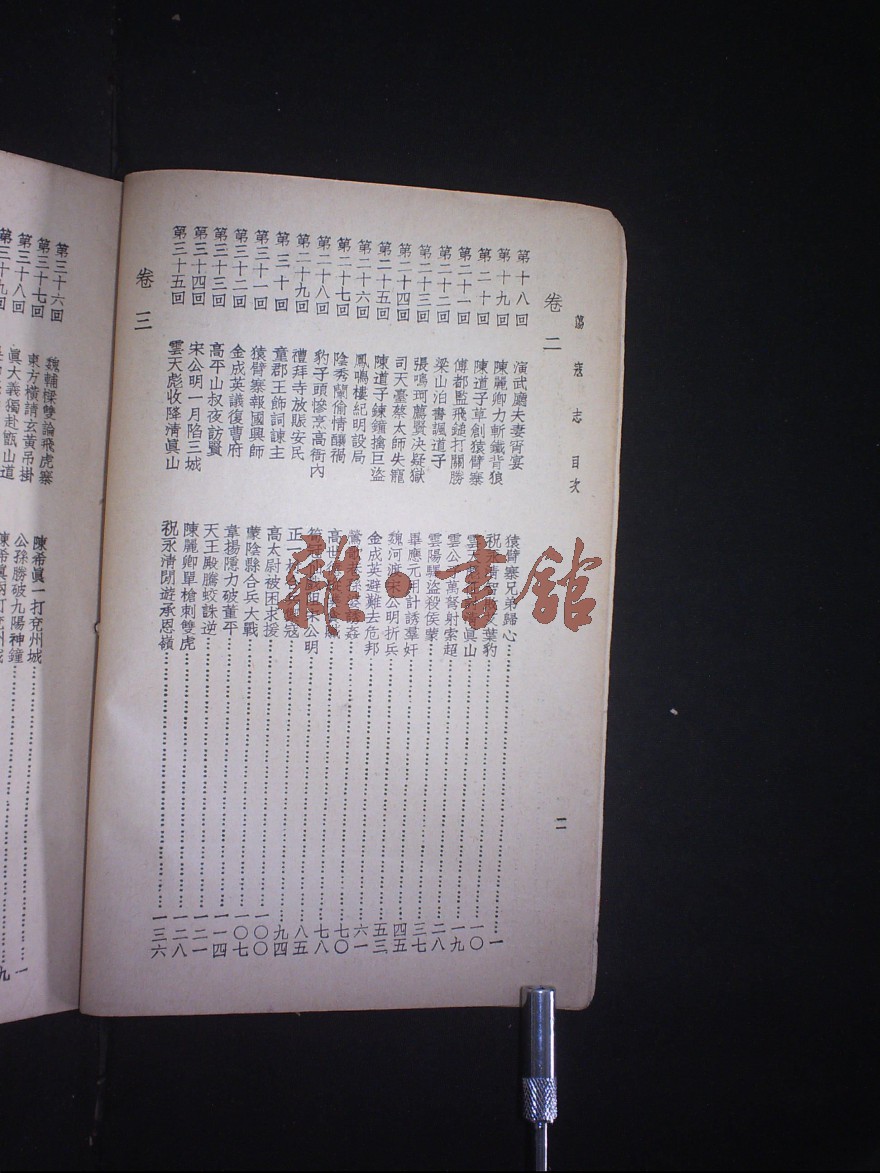 蕩寇志 目次 二
卷二
第十八回 演武廳夫妻宵宴 猿臂寨兄弟歸心……一
第十九回 陳麗卿力斬鐵背狼 祝永清智 葉豹……一〇
第二十回 陳道子草創猿臂寨 雲天 眞山……一九
第二十一回 傅都監飛鎚打關勝 雲公子萬弩射索超……二八
第二十二回 梁山泊書諷道子 雲陽驛盜殺侯蒙……三七
第二十三回 張鳴珂薦賢決疑獄 畢應元用計誘羣奸……四五
第二十四回 司天臺蔡太師失寵 魏河渡宋公明折兵……五三
第二十五回 陳道子鍊鐘擒巨盜 金成英避難去危邦……六一
第二十六回 鳳鳴樓紀明設局 鶯歌巷孫婆誘姦……七〇
第二十七回 陰秀蘭偷情釀禍 高世……七八
第二十八回 豹子頭慘烹高衙內 筍冠仙戲阻宋公明……八五
第二十九回 禮拜寺放賑安民 正一村 寇……九四
第三十回 童郡王飾詞諫主 高太尉被困求援……一〇〇
第三十一回 猿臂寨報國興師 蒙陰縣合兵大戰……一〇七
第三十二回 金成英議復曹府 韋揚隱力破董平……一一四
第三十三回 高平山叔夜訪賢 天王殿騰蛟誅逆……一二一
第三十四回 宋公明一月陷三城 陳麗卿單槍刺雙虎……一二八
第三十五回 雲天彪收降清眞山 祝永清閒遊承恩嶺……一三六
卷三
第三十六回 魏輔樑雙論飛虎寨 陳希眞一打兗州城……一
第三十七回 東方橫請玄黃吊掛 公孫勝破九陽神鐘……九
第三十八回 眞大義獨赴甑山道 陳希眞兩打兗州城
第三十九回
雜·書館